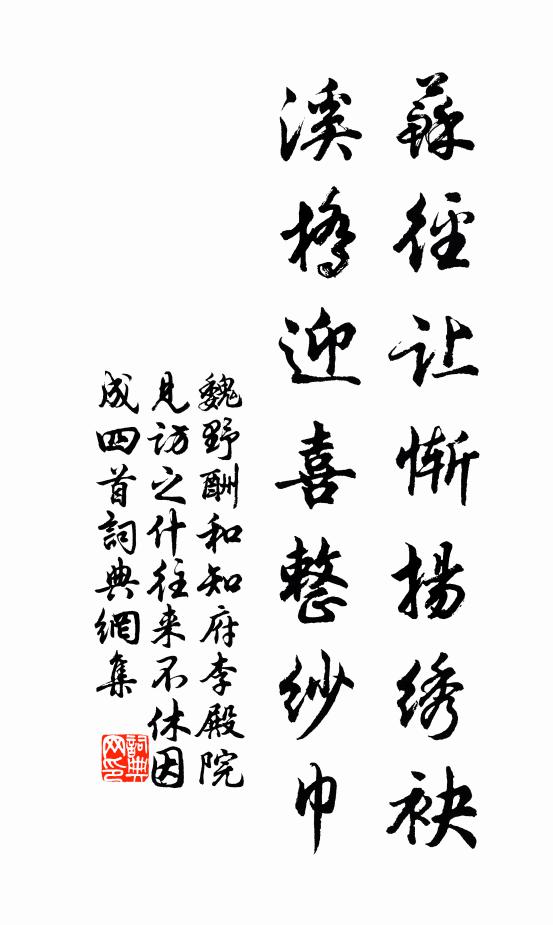 蘚徑让惭揚绣袂
溪橋迎喜整纱巾
魏野酬和知府李殿院
見访之什往来不休因
成四首詞典網集
詞典
网印